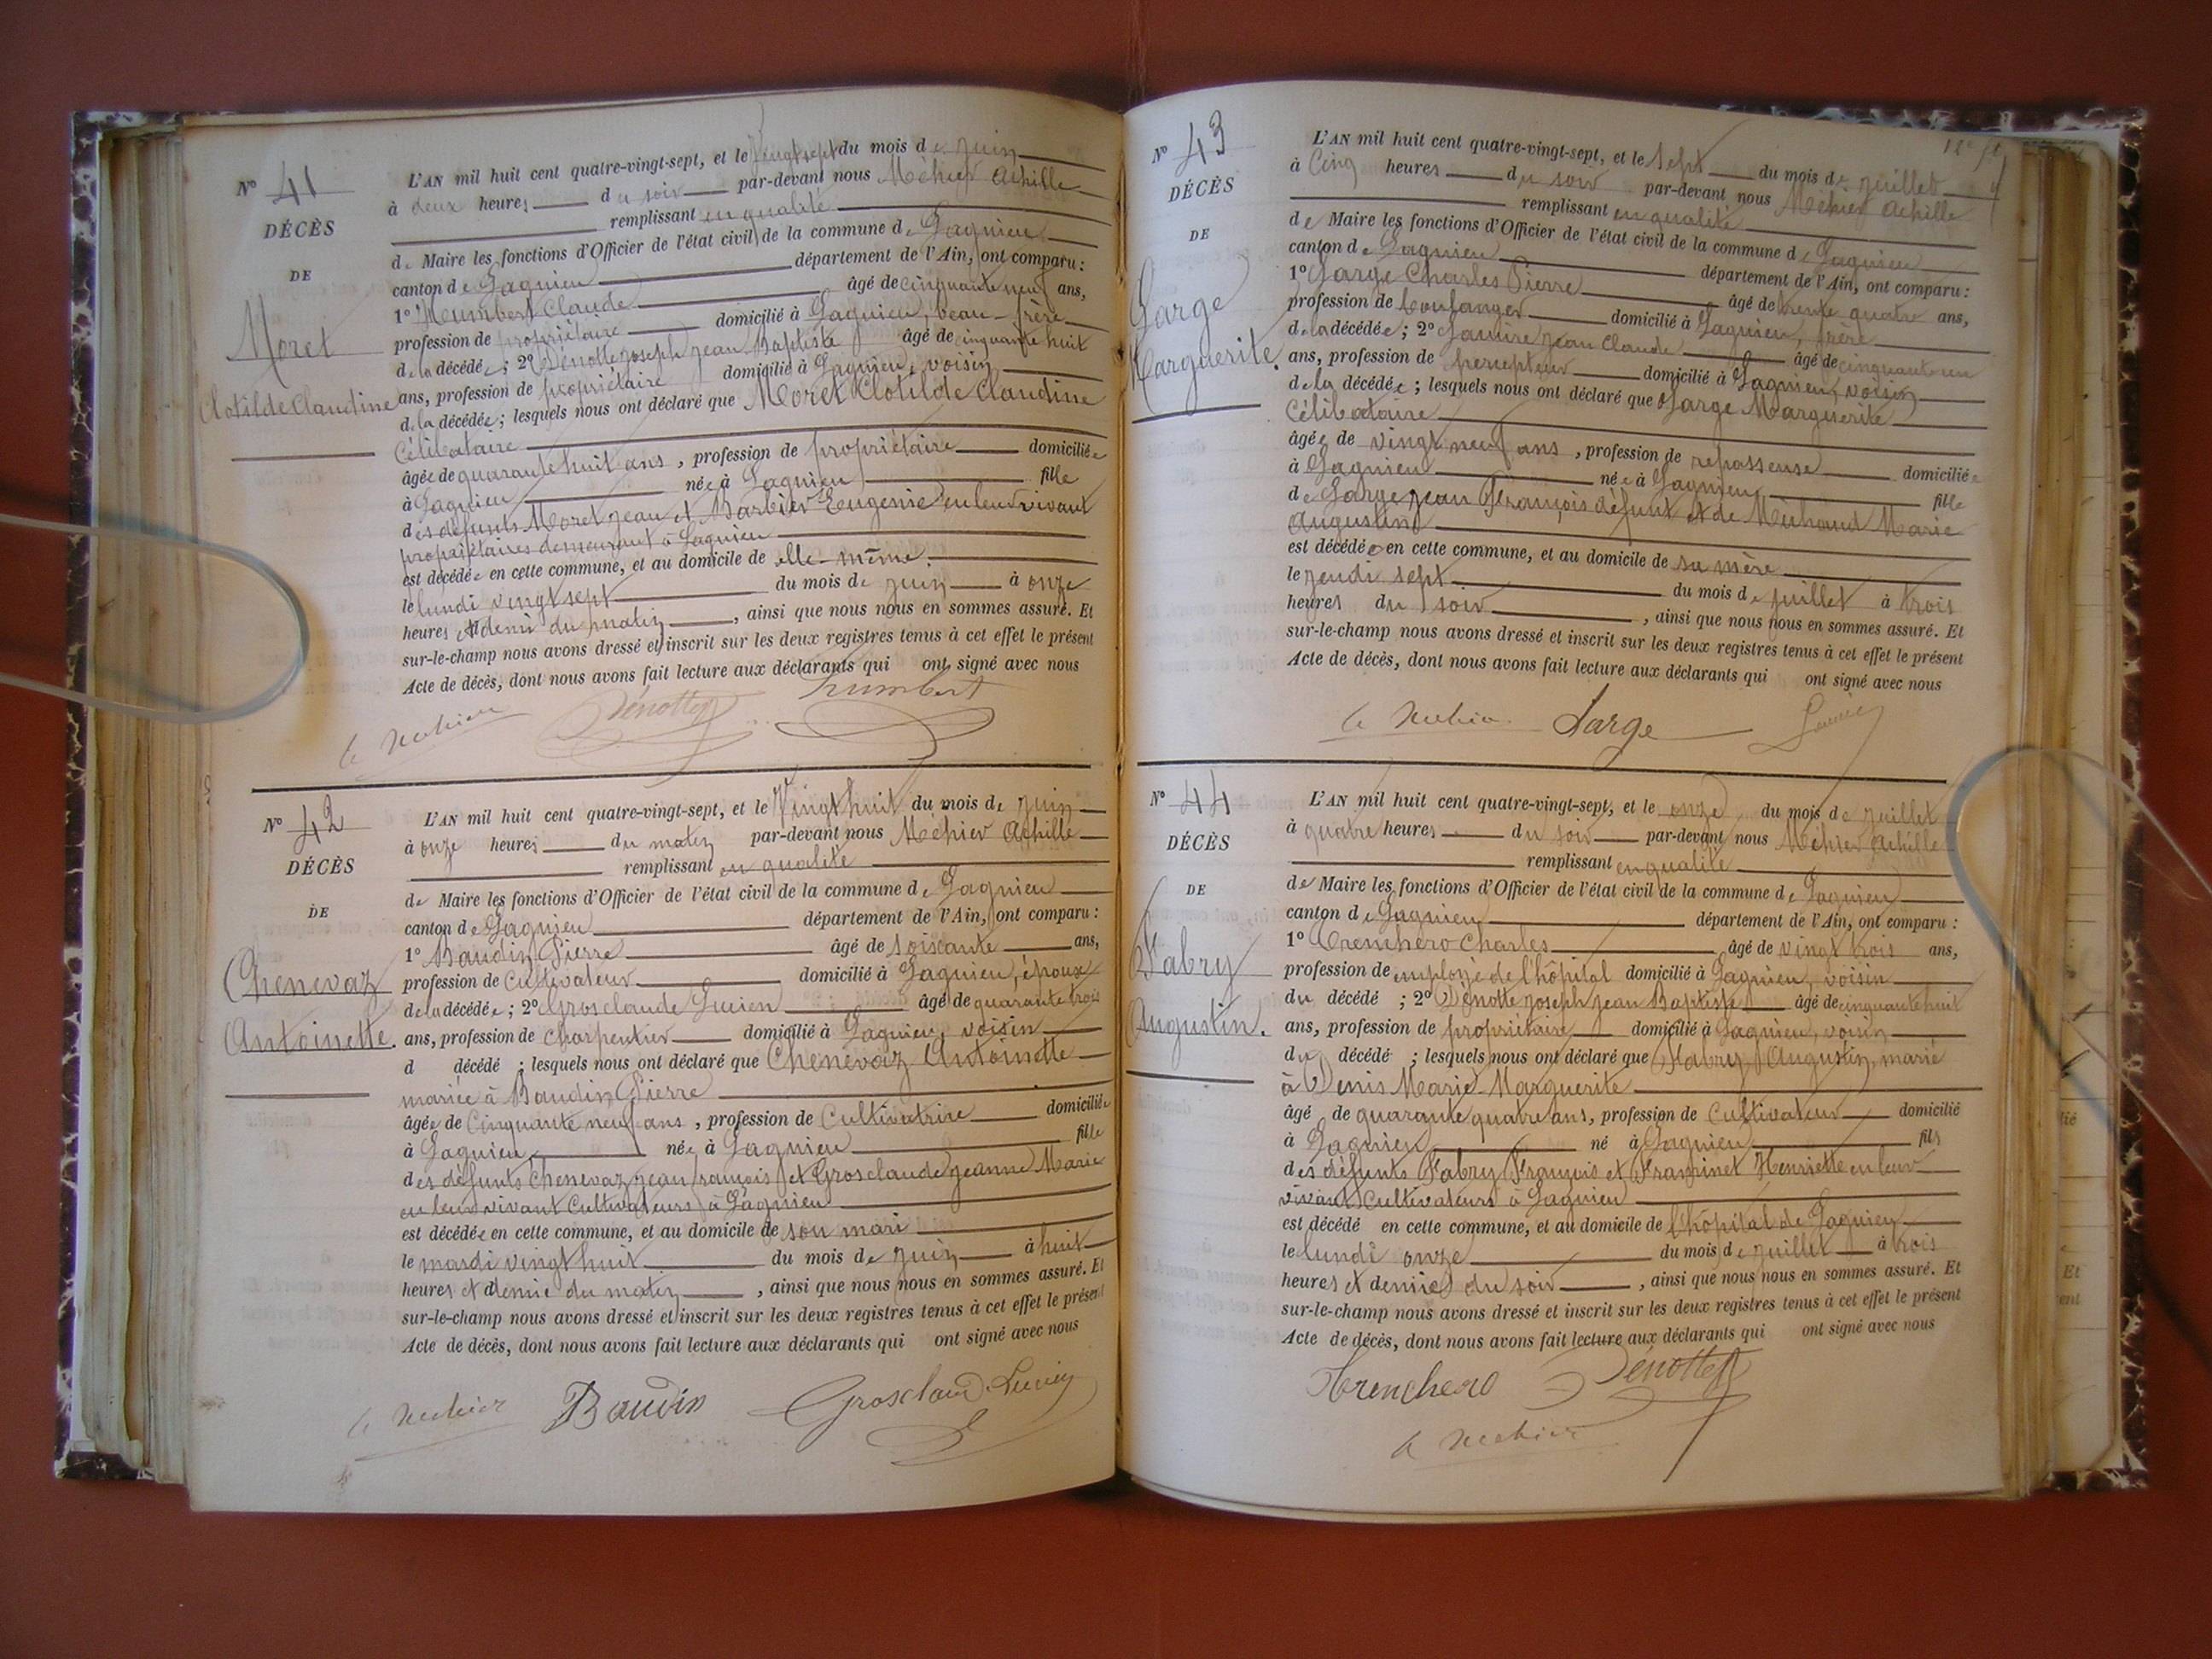 N° 41
DÉCÈS
DE
Moret
Clotilde Claudine
L'AN mil huit cent quatre-vingt-sept, et le vingt sept du mois de juin
à deux heures du soir par-devant nous Méhier Achille
remplissant en qualité
de Maire les fonctions d'Officier de l'état civil de la commune de Lagnieu
canton de Lagnieu département de l'Ain, ont comparu :
1° Humbert Claude âgé de cinquante neuf ans,
profession de propriétaire domicilié à Lagnieu, beau-frère
de la décédée ; 2° Dénotte joseph jean Baptiste âgé de cinquante huit
ans, profession de propriétaire domicilié à Lagnieu, voisin
de la décédée ; lesquels nous ont déclaré que Moret Clotilde Claudine
Célibataire
âgée de quarante huit ans, profession de propriétaire domiciliée
à Lagnieu née à Lagnieu fille
des défunts Moret jean et Barbier Eugenie en leur vivant
propriétaires demeurant à Lagnieu
est décédée en cette commune, et au domicile de elle-même.
le lundi vingt sept du mois de juin à onze
heures et demi du matin, ainsi que nous nous en sommes assuré. Et
sur-le-champ nous avons dressé et inscrit sur les deux registres tenus à cet effet le présent
Acte de décès, dont nous avons fait lecture aux déclarants qui ont signé avec nous
A Mehier Dénotte humbert
N° 42
DÉCÈS
DE
Chenevaz
Antoinette.
L'AN mil huit cent quatre-vingt-sept, et le Vingt huit du mois de juin
à onze heures du matin par-devant nous Méhier Achille
remplissant en qualité
de Maire les fonctions d'Officier de l'état civil de la commune de Lagnieu
canton de Lagnieu département de l'Ain, ont comparu :
1° Baudin Pierre âgé de soixante ans,
profession de Cultivateur domicilié à Lagnieu, époux
de la décédée ; 2° Grosclaude Lucien âgé de quarante trois
ans, profession de Charpentier domicilié à Lagnieu, voisin
d décédé ; lesquels nous ont déclaré que Chenevaz Antoinette
mariée à Baudin Pierre
âgée de Cinquante neuf ans, profession de Cultivatrice domiciliée
à Lagnieu née à Lagnieu fille
des défunts Chenevaz jean françois et Grosclaude jeanne Marie
en leur vivant Cultivateurs à Lagnieu
est décédée en cette commune, et au domicile de son mari
le mardi vingt huit du mois de juin à huit
heures et demie du matin, ainsi que nous nous en sommes assuré. Et
sur-le-champ nous avons dressé et inscrit sur les deux registres tenus à cet effet le présent
Acte de décès, dont nous avons fait lecture aux déclarants qui ont signé avec nous
A Mehier Baudin Grosclaud Lucien
N° 43
DÉCÈS
DE
Large
Marguerite.
L'AN mil huit cent quatre-vingt-sept, et le sept du mois de juillet
à Cinq heures du soir par-devant nous Méhier Achille
remplissant en qualité
de Maire les fonctions d'Officier de l'état civil de la commune de Lagnieu
canton de Lagnieu département de l'Ain, ont comparu :
1° Large Charles Pierre âgé de trente quatre ans,
profession de boulanger domicilié à Lagnieu, frère
de la décédée ; 2° jean Claude âgé de cinquante un
ans, profession de percepteur domicilié à Lagnieu, voisin
de la décédée ; lesquels nous ont déclaré que Large Marguerite
Célibataire
âgée de vingt neuf ans, profession de repasseuse domiciliée
à Lagnieu née à Lagnieu fille
de Large jean François défunt et de Michaud Marie
Augustine
est décédée en cette commune, et au domicile de sa mère
le jeudi sept du mois de juillet à trois
heures du soir, ainsi que nous nous en sommes assuré. Et
sur-le-champ nous avons dressé et inscrit sur les deux registres tenus à cet effet le présent
Acte de décès, dont nous avons fait lecture aux déclarants qui ont signé avec nous
A Mehier Large
N° 44
DÉCÈS
DE
Fabry
Augustin.
L'AN mil huit cent quatre-vingt-sept, et le onze du mois de juillet
à quatre heures du soir par-devant nous Méhier Achille
remplissant en qualité
de Maire les fonctions d'Officier de l'état civil de la commune de Lagnieu
canton de Lagnieu département de l'Ain, ont comparu :
1° Trenchero Charles âgé de vingt trois ans,
profession de employé de l'hôpital domicilié à Lagnieu, voisin
du décédé ; 2° Dénotte joseph jean Baptiste âgé de cinquante huit
ans, profession de propriétaire domicilié à Lagnieu, voisin
du décédé ; lesquels nous ont déclaré que Fabry Augustin, marié
à Denis Marie Marguerite
âgé de quarante quatre ans, profession de Cultivateur domicilié
à Lagnieu né à Lagnieu fils
des défunts Fabry François et Frassinet Henriette en leur
vivant Cultivateurs à Lagnieu
est décédé en cette commune, et au domicile de l'hôpital de Lagnieu
le lundi onze du mois de juillet à trois
heures et demies du soir, ainsi que nous nous en sommes assuré. Et
sur-le-champ nous avons dressé et inscrit sur les deux registres tenus à cet effet le présent
Acte de décès, dont nous avons fait lecture aux déclarants qui ont signé avec nous
Trenchero Dénotte
A Mehier